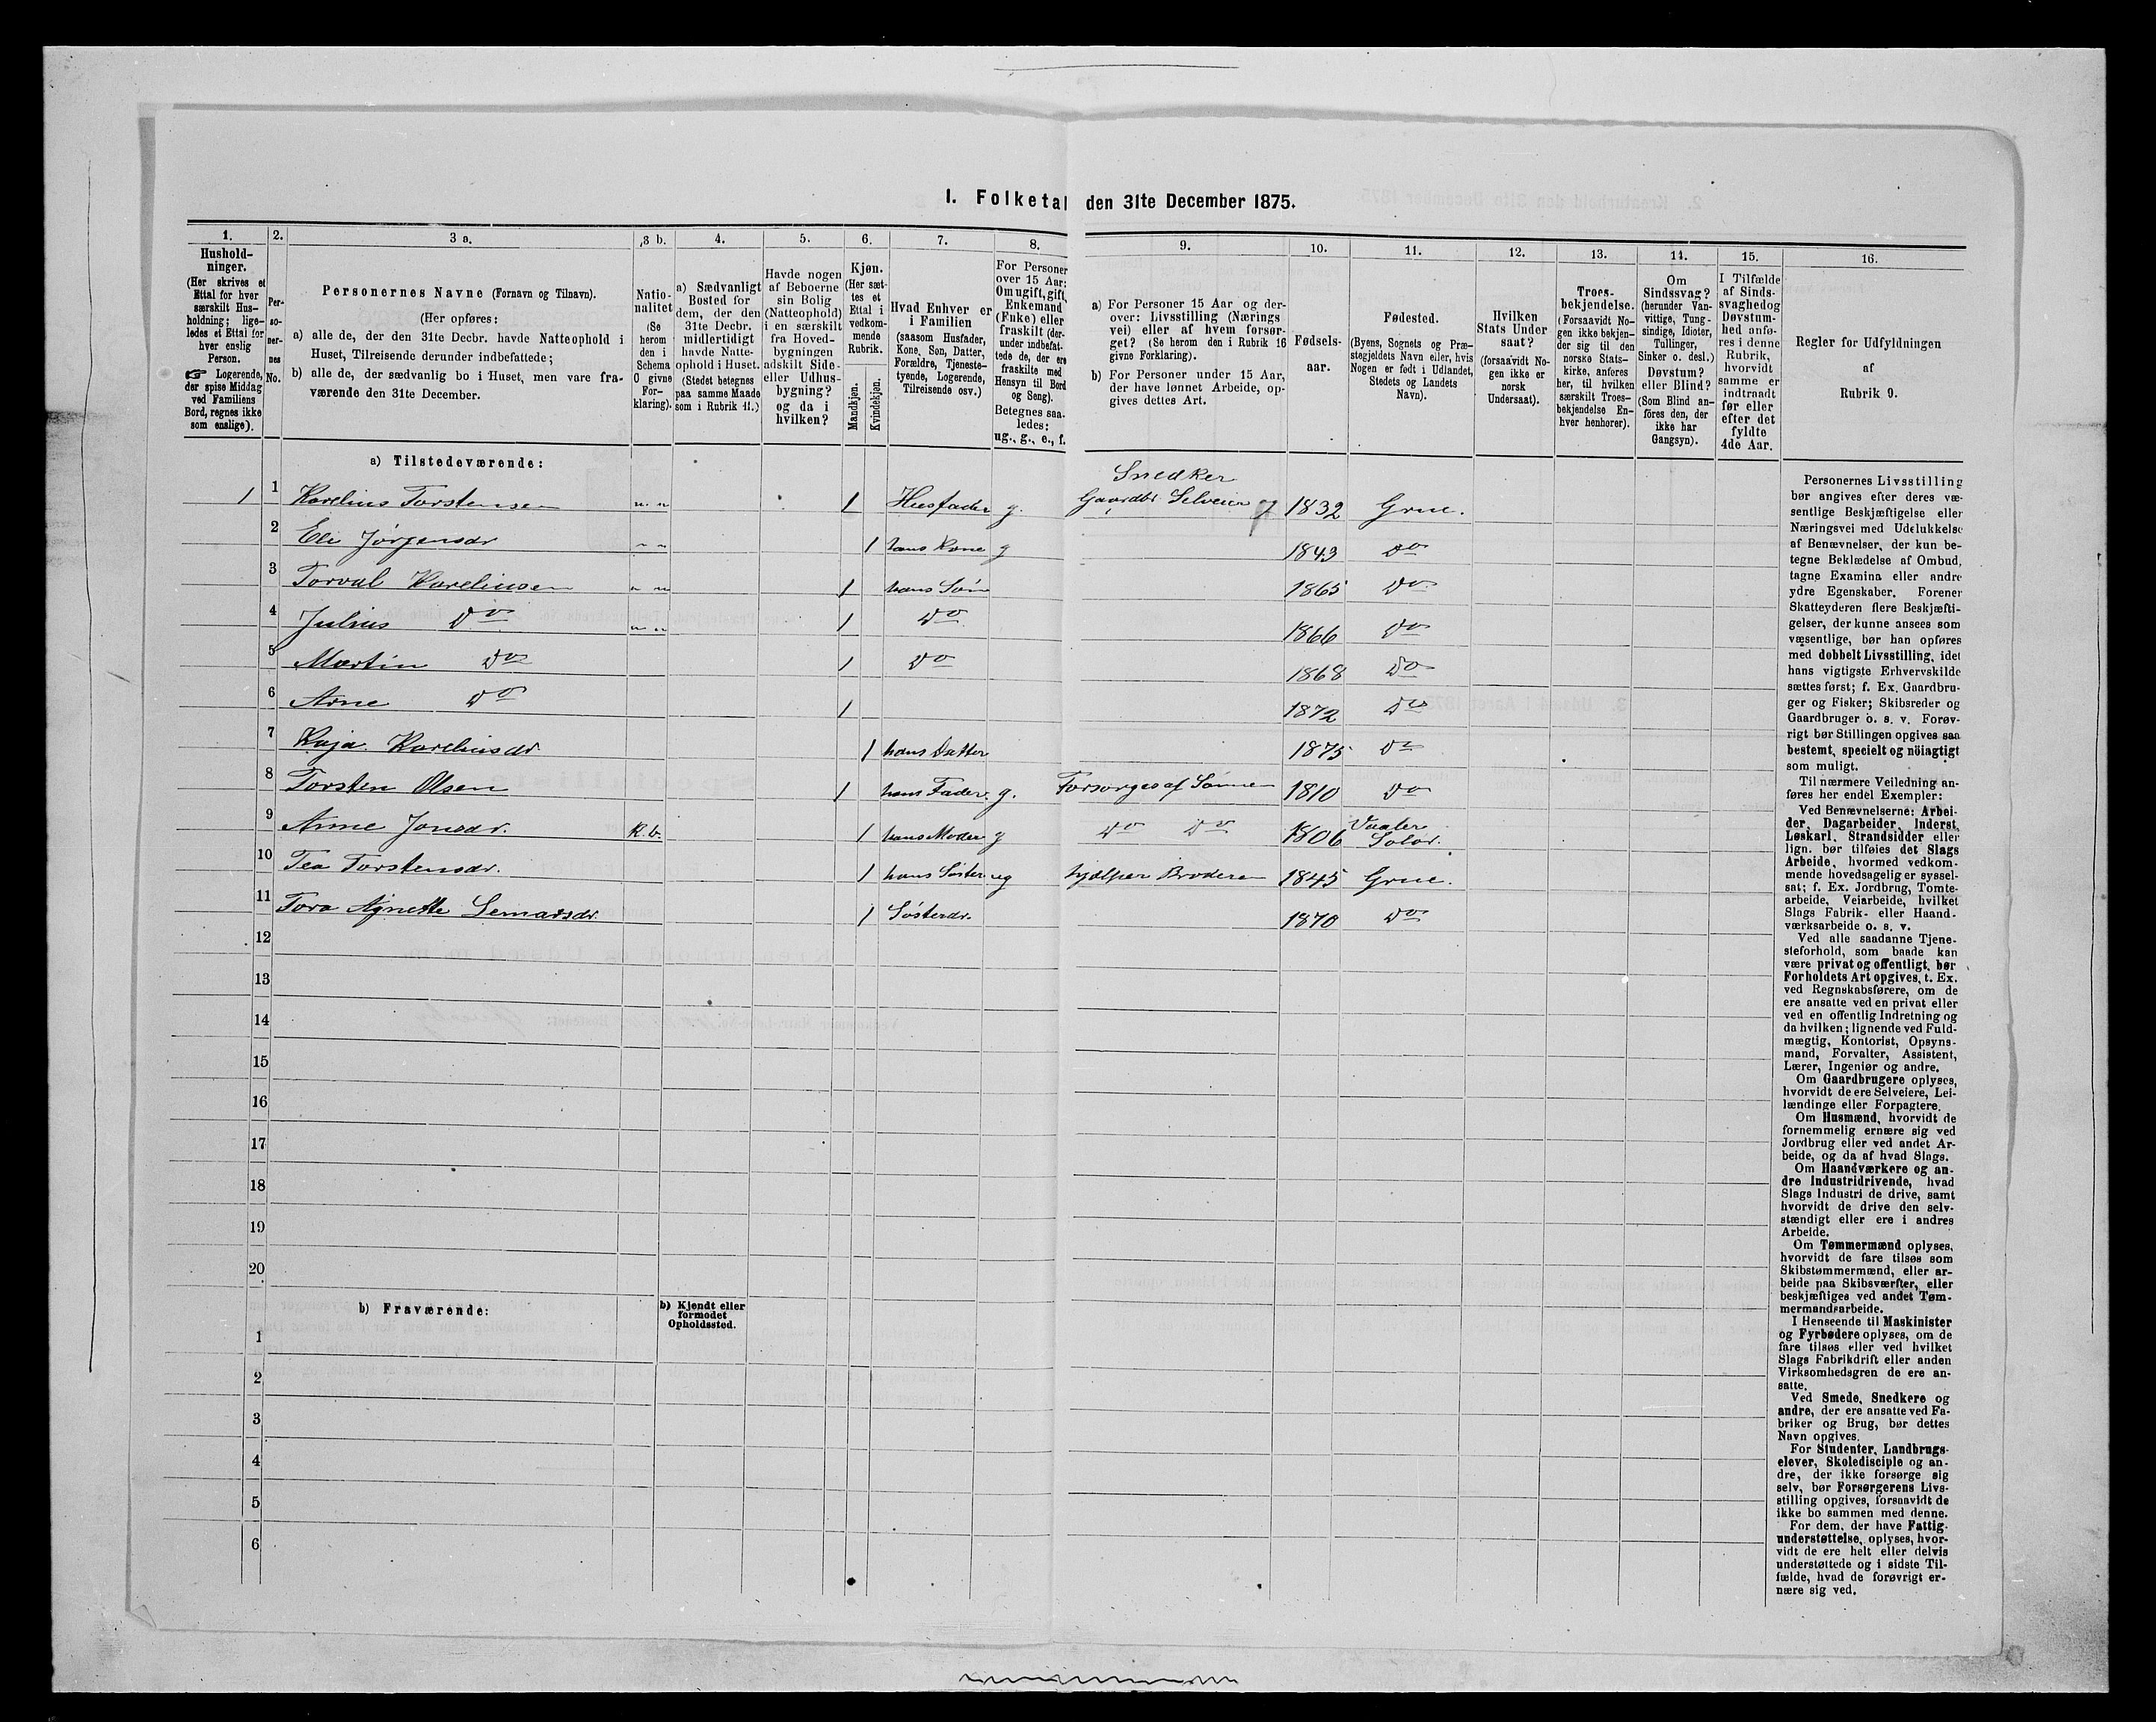 I. Folketal den 31te December 1875.
1.
Hushold-
ninger.
(Her skrives et
Ettal for hver
særskilt Hus-
holdning; lige-
ledes et Ettal for
hver enslig
Person.
☞ Logerende,
der spise Middag
ved Familiens
Bord, regnes ikke
som enslige).
2.
Per-
so-
ner-
nes
No.
3 a.
Personernes Navne (Fornavn og Tilnavn).
(Her opføres:
a) alle de, der den 31te Decbr. havde Natteophold i
Huset, Tilreisende derunder indbefattede;
b) alle de, der sædvanlig bo i Huset, men vare fra-
værende den 31te December.
3 b.
Natio-
nalitet
(Se
herom
den i
Schema
O givne
For-
klaring).
4.
a) Sædvanligt
Bosted for
dem, der den
31te Decbr.
midlertidigt
havde Natte-
ophold i Huset.
(Stedet betegnes
paa samme Maade
som i Rubrik 11.)
5.
Havde nogen
af Beboerne
sin Bolig
(Natteophold)
i en særskilt
fra Hoved-
bygningen
adskilt Side-
eller Udhus-
bygning?
og da i
hvilken?
6.
Kjøn.
(Her sæt-
tes et
Ettal i
vedkom-
mende
Rubrik.
Mandkjøn.
Kvindekjøn.
7.
Hvad Enhver er
i Familien
(saasom Husfader,
Kone, Søn, Datter,
Forældre, Tjeneste-
tyende, Logerende,
Tilreisende osv.)
8.
For Personer
over 15 Aar:
Om ugift, gift,
Enkemand
(Enke) eller
fraskilt (der-
under indbefat-
tede de, der ere
fraskilte med
Hensyn til Bord
og Seng).
Betegnes saa-
ledes:
ug., g., e., f.
9.
a) For Personer 15 Aar og der-
over: Livsstilling (Nærings
vei) eller af hvem forsør-
get? (Se herom den i Rubrik 16
givne Forklaring).
b) For Personer under 15 Aar,
der have lønnet Arbeide, op-
gives dettes Art.
10.
Fødsels-
aar.
11.
Fødested.
(Byens, Sognets og Præ-
stegjeldets Navn eller, hvis
Nogen er født i Udlandet,
Stedets og Landets
Navn).
12.
Hvilken
Stats Under
saat?
(forsaavidt No-
gen ikke er
norsk
Undersaat).
13.
Troes-
bekjendelse.
(Forsaavidt No-
gen ikke bekjen-
der sig til den
norske Stats-
kirke, anføres
her, til hvilken
særskilt Troes-
bekjendelse En-
hver henhører).
14.
Om
Sindssvag?
(herunder Van-
vittige, Tung-
sindige, Idioter,
Tullinger,
Sinker o. desl.)
Døvstum?
eller Blind?
(Som Blind an-
føres den, der
ikke har
Gangsyn).
15.
I Tilfælde
af Sinds-
svaghed og
Døvstum-
hed anfø-
res i denne
Rubrik,
hvorvidt
samme er
indtraadt
før eller
efter det
fyldte
4de Aar.
16.
Regler for Udfyldningen
af
Rubrik 9.
a) Tilstedeværende:
Snedker
1 1 Karelius Torstensen n. n 1 Husfader g. Gaardbr. Selveier og 1832 Grue.
2 Eli Jørgensdr 1 hans Kone g 1843 Do
3 Torval Kareliusen 1 hans Søn 1865 Do
4 Julius Do 1 Do 1866 Do
5 Martin Do 1 Do 1868 Do
6 Arne Do 1 1872 Do
7 Kaja Kareliusdr 1 hans Datter 1875 Do
8 Torsten Olsen 1 hans Fader g. Forsørges af Sønnen 1810 Do
9 Anne Jonsdr. K. b. 1 hans Moder g Do Do 1806 Vaaler Solør.
10 Tea Torstensdr. 1 hans Søster ug hjælper Broderen 1845 Grue.
11 Tora Agnette Lemarsdr. 1 Søsterdr. 1870 Do
12
13
14
15
16
17
18
19
20
b) Fraværende:
b) Kjendt eller
formodet
Opholdssted.
1
2
3
4
5
6
Personernes Livsstilling
bør angives efter deres væ-
sentlige Beskjæftigelse eller
Næringsvei med Udelukkelse
af Benævnelser, der kun be-
tegne Beklædelse af Ombud,
tagne Examina eller andre
ydre Egenskaber. Forener
Skatteyderen flere Beskjæfti-
gelser, der kunne ansees som
væsentlige, bør han opføres
med dobbelt Livsstilling, idet
hans vigtigste Erhvervskilde
sættes først; f. Ex. Gaardbru-
ger og Fisker; Skibsreder og
Gaardbruger o. s. v. Forøv-
rigt bør Stillingen opgives saa
bestemt, specielt og nöiagtigt
som muligt.
Til nærmere Veiledning an-
føres her endel Exempler:
Ved Benævnelserne: Arbei-
der, Dagarbeider, Inderst,
Løskarl, Strandsidder eller
lign. bør tilføies det Slags
Arbeide, hvormed vedkom-
mende hovedsagelig er syssel-
sat; f. Ex. Jordbrug, Tomte-
arbeide, Veiarbeide, hvilket
Slags Fabrik- eller Haand-
værksarbeide o. s. v.
Ved alle saadanne Tjene-
steforhold, som baade kan
være privat og offentligt, bør
Forholdets Art opgives, t. Ex.
ved Regnskabsførere, om de
ere ansatte ved en privat eller
ved en offentlig Indretning og
da hvilken; lignende ved Fuld-
mægtig, Kontorist, Opsyns-
mand, Forvalter, Assistent,
Lærer, Ingeniør og andre.
Om Gaardbrugere oplyses,
hvorvidt de ere Selveiere, Lei-
lændinge eller Forpagtere.
Om Husmænd, hvorvidt de
fornemmelig ernære sig ved
Jordbrug eller ved andet Ar-
beide, og da af hvad Slags.
Om Haandværkere og an-
dre Industridrivende, hvad
Slags Industri de drive, samt
hvorvidt de drive den selv-
stændigt eller ere i andres
Arbeide.
Om Tømmermænd oplyses,
hvorvidt de fare tilsøs som
Skibstømmermænd, eller ar-
beide paa Skibsværfter, eller
beskjæftiges ved andet Tøm-
mermandsarbeide.
I Henseende til Maskinister
og Fyrbødere oplyses, om de
fare tilsøs eller ved hvilket
Slags Fabrikdrift eller anden
Virksomhedsgren de ere an-
satte.
Ved Smede, Snedkere og
andre, der ere ansatte ved Fa-
briker og Brug, bør dettes
Navn opgives.
For Studenter, Landbrugs-
elever, Skoledisciple og an-
dre, der ikke forsørge sig
selv, bør Forsørgerens Livs-
stilling opgives, forsaavidt de
ikke bo sammen med denne.
For dem, der have Fattig-
understøttelse, oplyses, hvor-
vidt de ere helt eller delvis
understøttede og i sidste Til-
fælde, hvad de forøvrigt er-
nære sig ved.